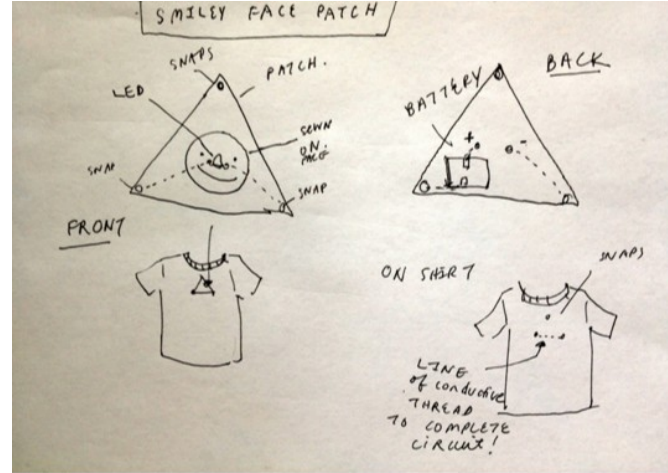 SMILEY FACE PATCH
SNAPS
PATCH.
LED
SEWN
ON.
FACE
SNAP
SNAP
FRONT
BACK
BATTERY
+
-
ON SHIRT
SNAPS
LINE
of conductive
THREAD
TO COMPLETE
CIRCUIT!